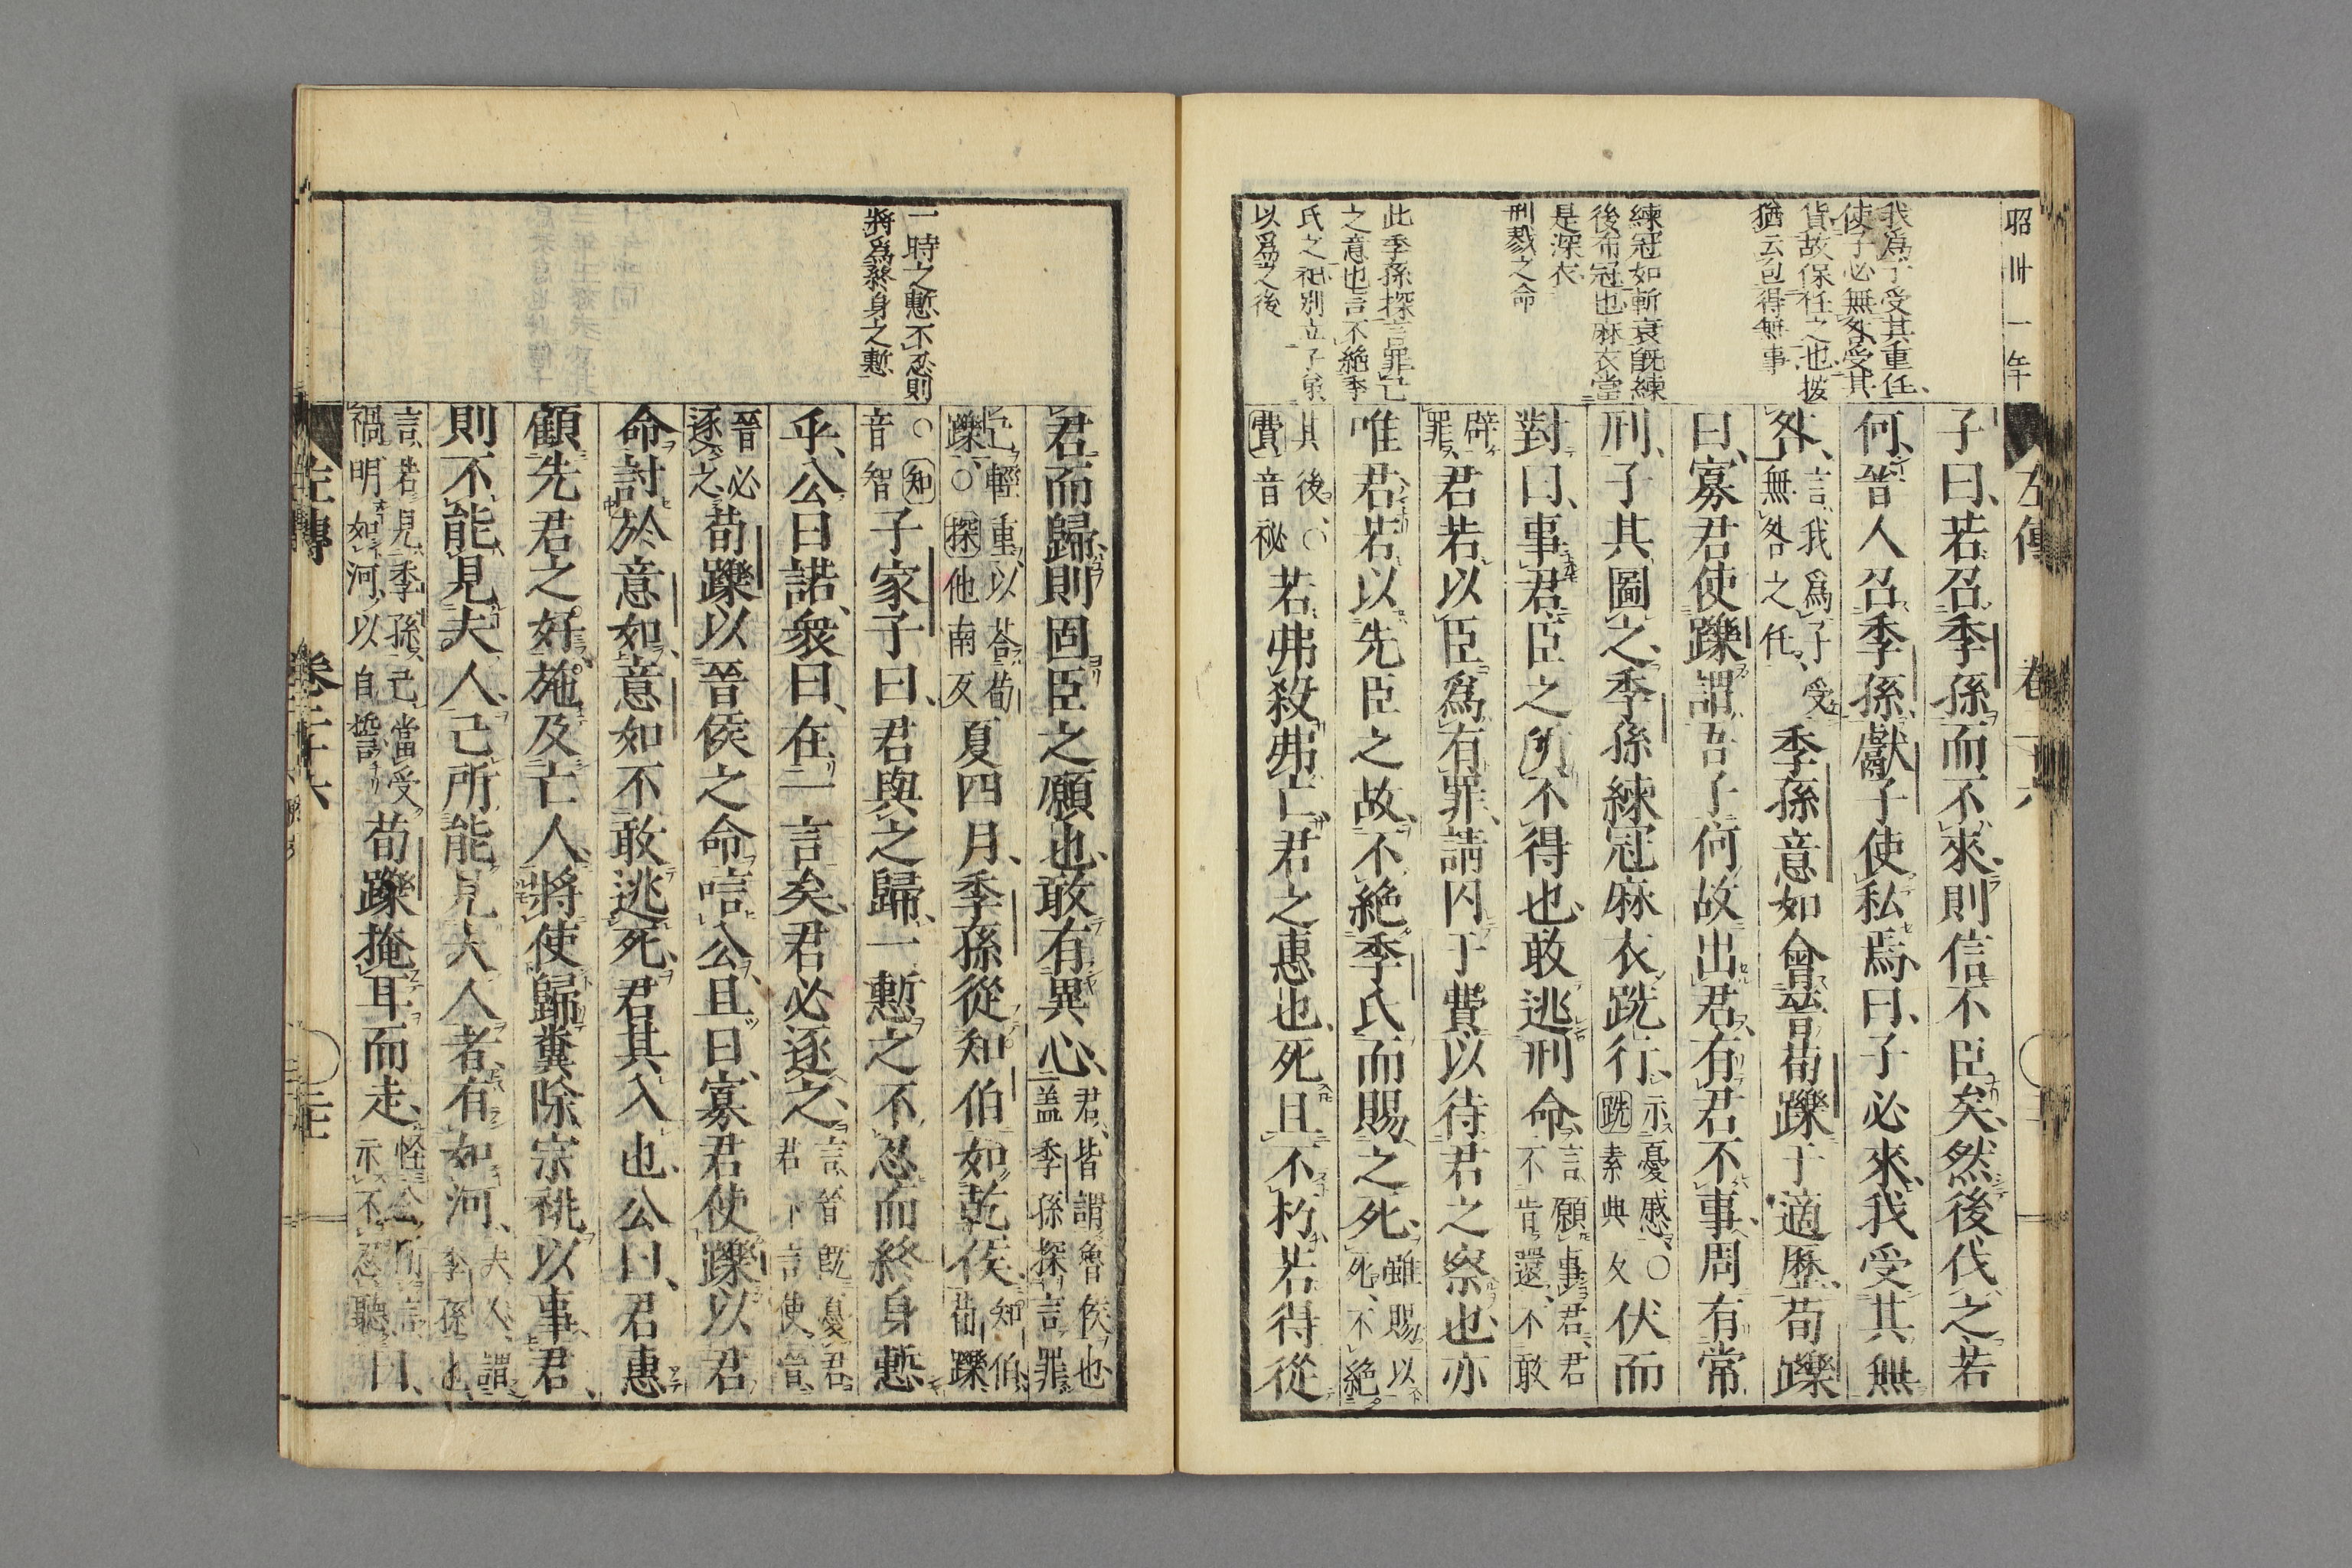 昭卅一年
我爲子受其重任
使子必無咎受其
貨故保任之也按
猶云包得無事
練冠如斬衰既練
後布冠也麻衣當
是深衣
刑戮之命
此季孫探言罪己
之意也言不絶季
氏之祀別立子弟
以爲之後
左傳 卷
子曰若召季孫而不來則信不臣矣然後伐之若
何晉人召季孫獻子使私焉曰子必來我受其無
咎言我爲子受無咎之任季孫意如會晉荀躒于適歷荀躒
曰寡君使躒謂吾子何故出君有君不事周有常
刑子其圖之季孫練冠麻衣跣行示憂慼○跣素典反伏而
對曰事君臣之所不得也敢逃刑命言願事君君不肯還不敢
辟罪君若以臣爲有罪請囚于費以待君之察也亦
唯君若以先臣之故不絶季氏而賜之死雖賜以死不絶
其後○費音祕若弗殺弗亡君之惠也死且不朽若得從
一時之慙不忍則
將爲終身之慙
君而歸則固臣之願也敢有異心君皆謂魯侯也蓋季孫探言罪
己輕重以荅荀躒○探他南反夏四月季孫從知伯如乾侯知伯荀躒
○知音智子家子曰君與之歸一慙之不忍而終身慙
乎公曰諾衆曰在一言矣君必逐之言晉既憂君君一言使晉
晉必逐之荀躒以晉侯之命唁公且曰寡君使躒以君
命討於意如意如不敢逃死君其入也公曰君惠
顧先君之好施及亡人將使歸糞除宗祧以事君
則不能見夫人己所能見夫人者有如河夫人謂季孫也
言若見季孫己當受禍明如河以自誓荀躒掩耳而走怪公所言示不忍聽曰
左傳 卷二十六